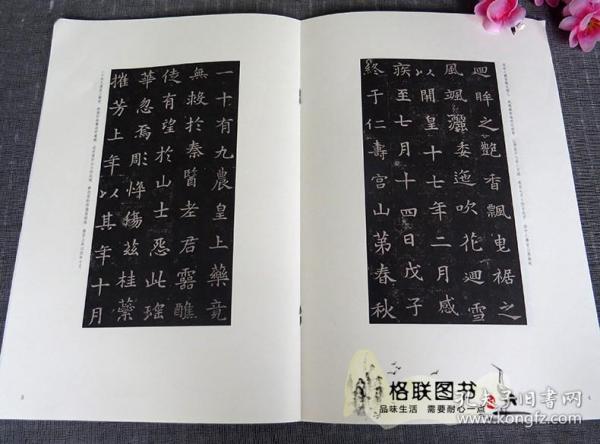 迴眸之艷香飄曳裾之
風颯灑委迤吹花迴雪
以開皇十七年二月感
疾至七月十四日戊子
終于仁壽宮山第春秋
一十有九農皇上藥竟
無救於秦醫老君靈醮
徒有望於山士怨此瑤
華忽焉彫悴傷茲桂蘂
摧芳上年以其年十月
8
格联图书
品味生活 需要耐心一点
孔夫子旧书网
www.kongfz.com